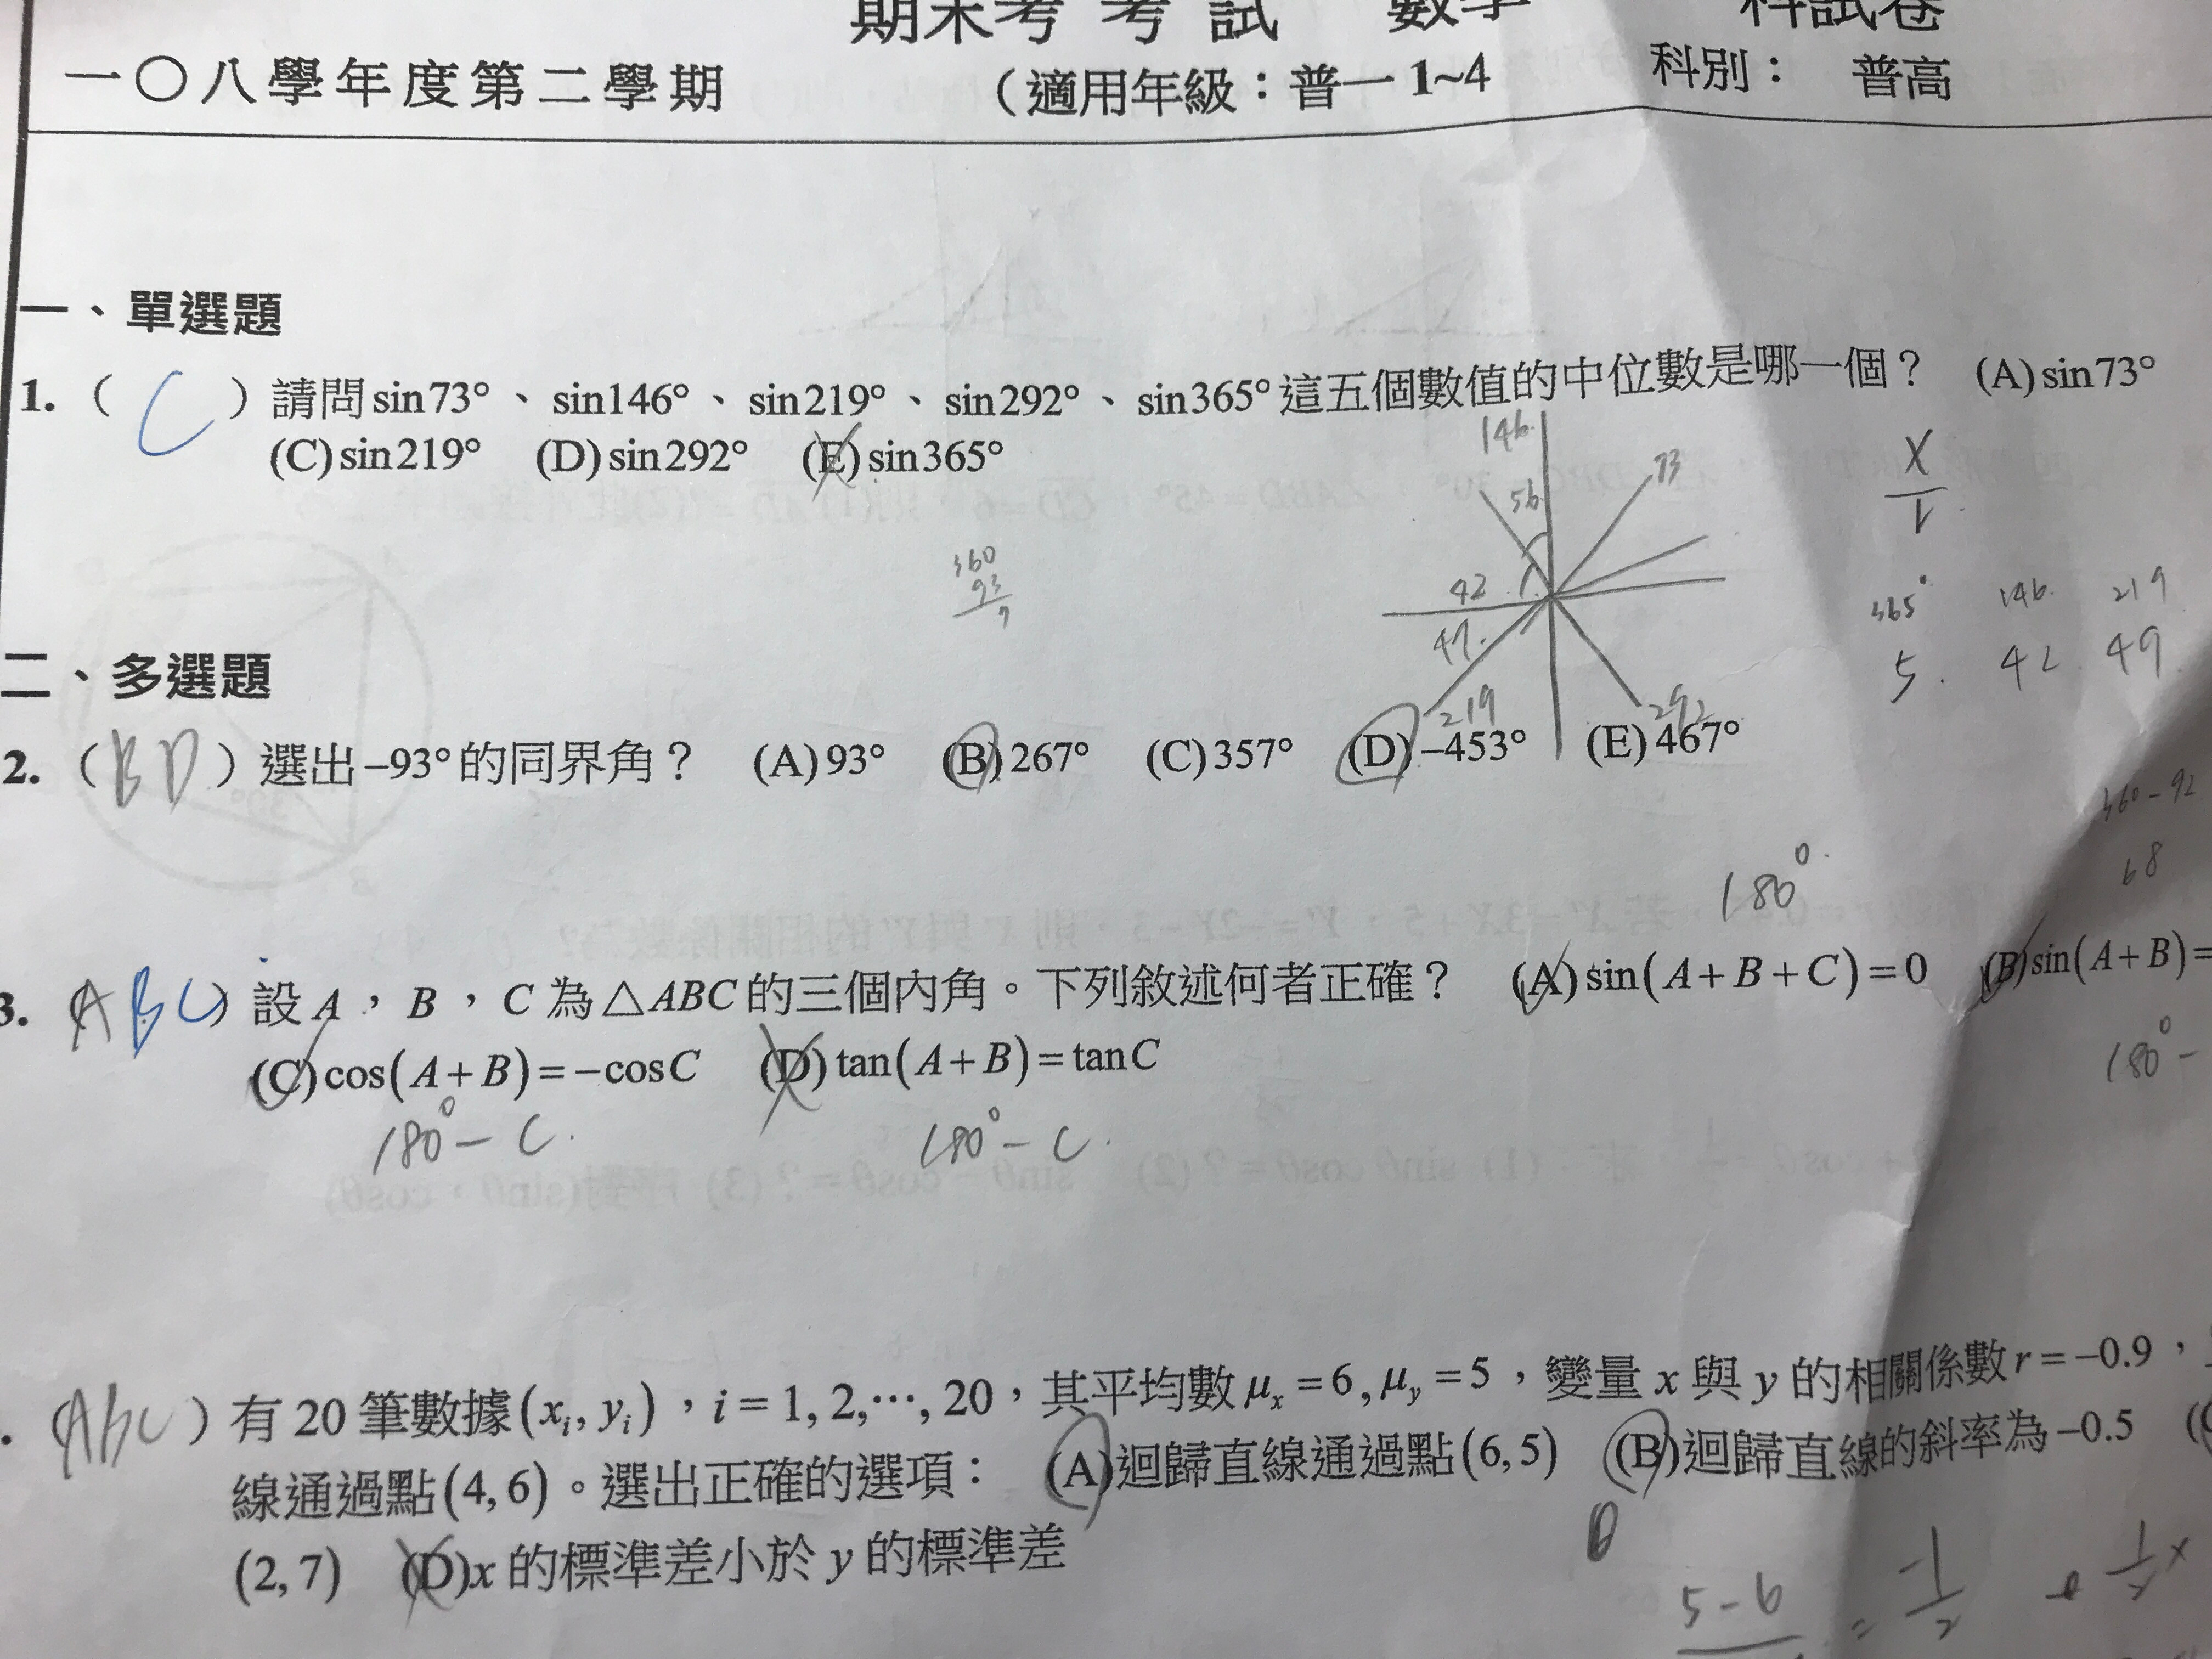 期末考 考 試 數學 科試卷
一〇八學年度第二學期 (適用年級：普一 1~4 科別： 普高
一、單選題
1. ( C ) 請問 sin73° 、 sin146° 、 sin219° 、 sin292° 、 sin365° 這五個數值的中位數是哪一個？ (A) sin73°
(C) sin219° (D) sin292° (E) sin365°
146. 73
56.
360
93
7
42
47.
219 292
x
1
365° 146. 219
5. 42 49
二、多選題
2. ( BD ) 選出 –93° 的同界角？ (A) 93° (B) 267° (C) 357° (D) –453° (E) 467°
360-92
68
180°
3. ABC ) 設 A， B ， C 為 △ABC 的三個內角。下列敘述何者正確？ (A) sin(A+B+C)=0 (B) sin(A+B)=
(C) cos(A+B)=−cosC (D) tan(A+B)=tanC
180°-
180°- C. 180°- C.
. (ABC ) 有 20 筆數據 (xᵢ, yᵢ) ，i = 1, 2,⋯, 20，其平均數 μₓ = 6, μᵧ = 5 ，變量 x 與 y 的相關係數 r = −0.9 ，
線通過點 (4, 6) 。選出正確的選項： (A) 迴歸直線通過點 (6, 5) (B) 迴歸直線的斜率為 −0.5
(2, 7) (D) x 的標準差小於 y 的標準差